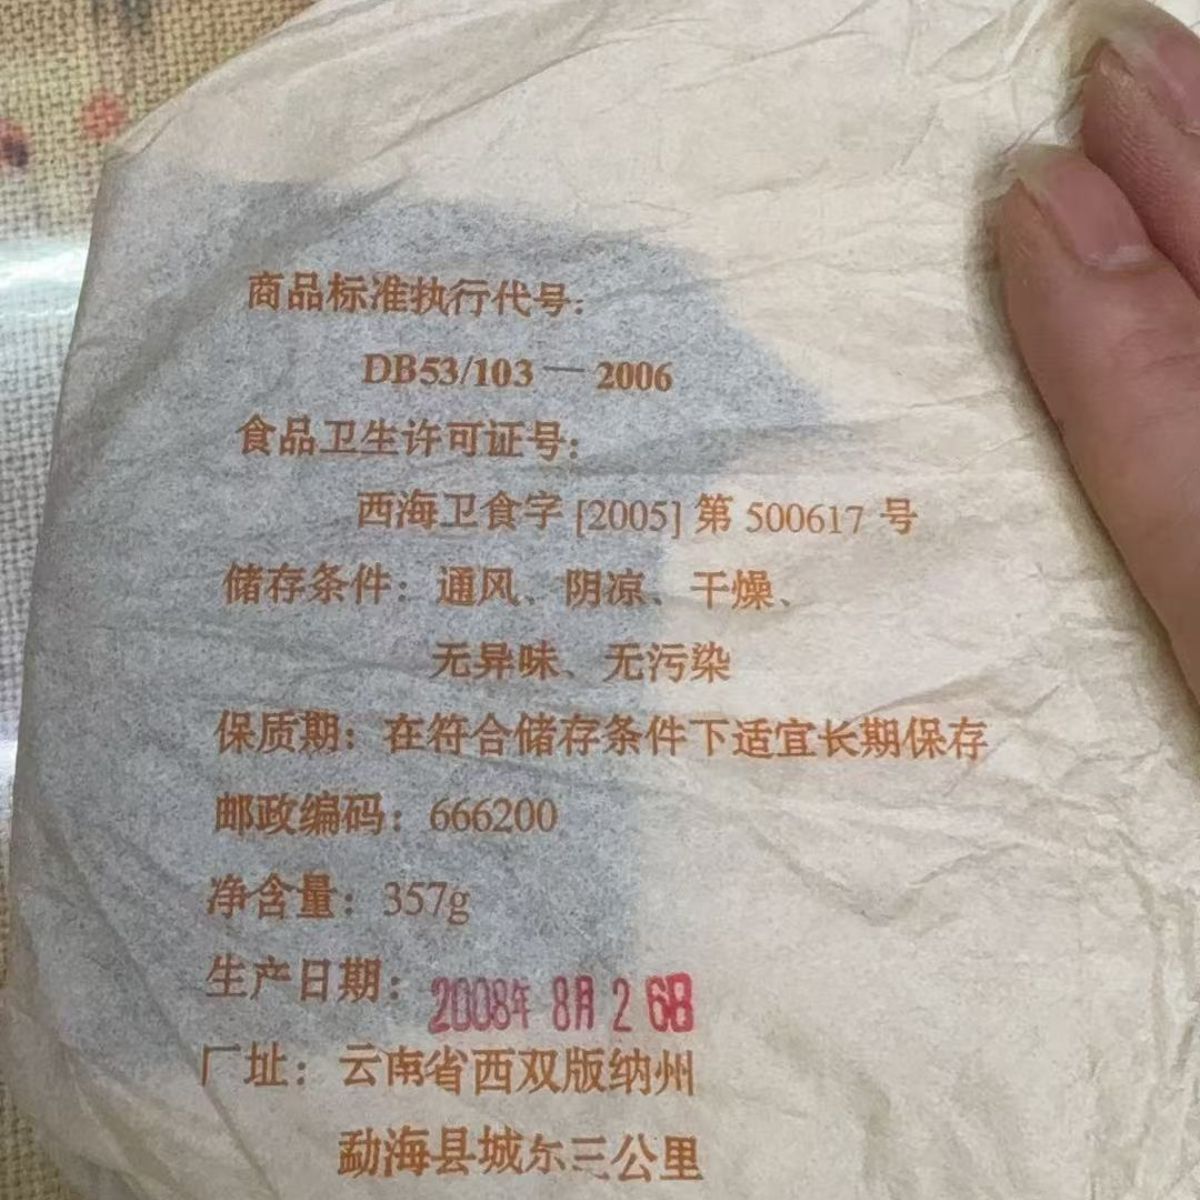 商品标准执行代号:
DB53/103—2006
食品卫生许可证号:
西海卫食字[2005]第500617号
储存条件：通风、阴凉、干燥、
无异味、无污染
保质期：在符合储存条件下适宜长期保存
邮政编码：666200
净含量：357g
生产日期：2008年8月26日
厂址：云南省西双版纳州
勐海县城东三公里